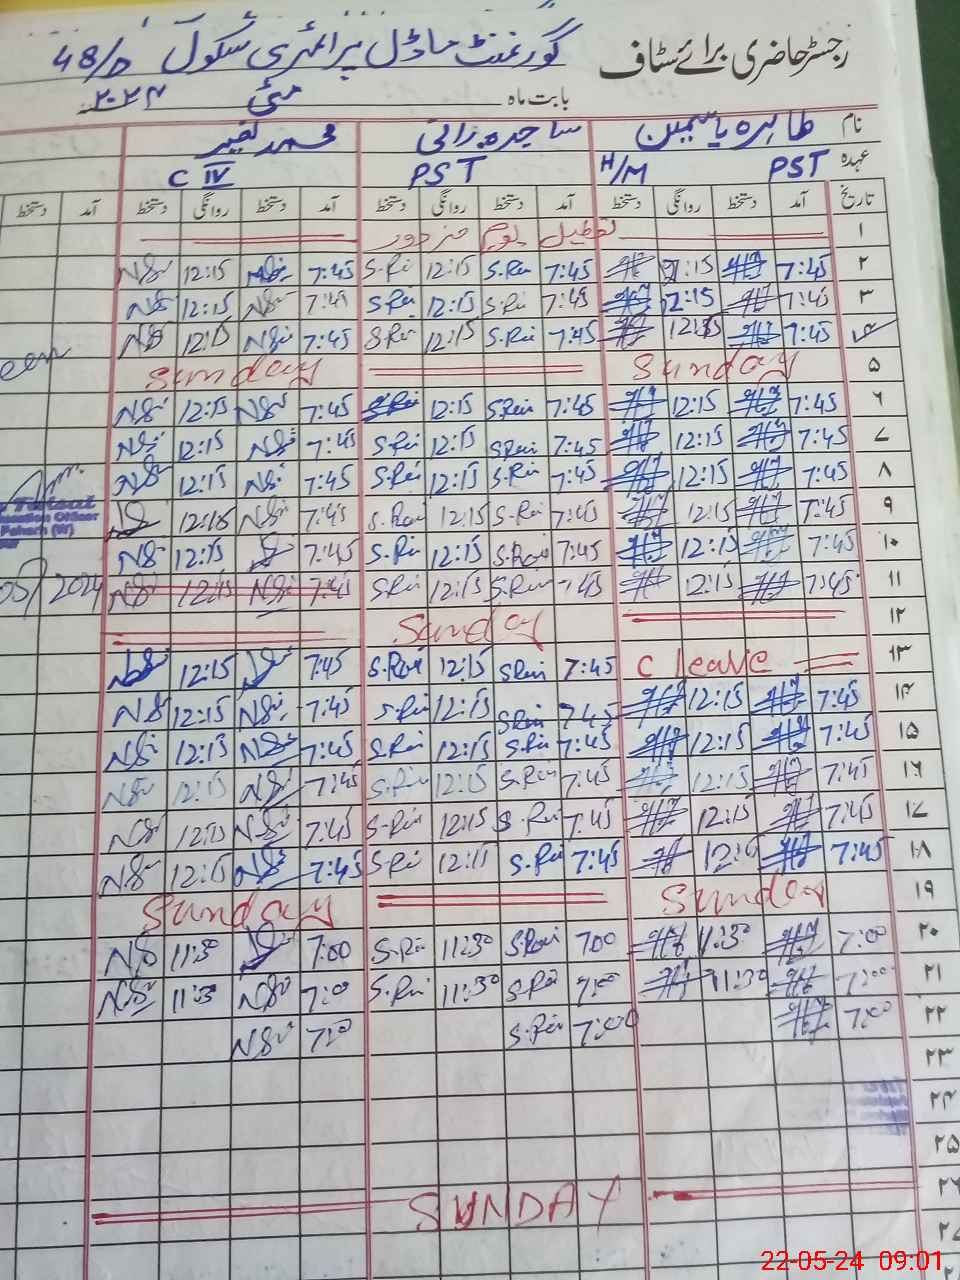 رجسٹر حاضری برائے سٹاف گورنمنٹ ماڈل پرائمری سکول 48/D
بابت ماہ مئی ۲۰۲۴ء
نام طاہرہ یاسمین ساجدہ رانی محمد نصیر
عہدہ PST H/M PST C IV
تاریخ آمد دستخط روانگی دستخط آمد دستخط روانگی دستخط آمد دستخط روانگی دستخط آمد دستخط
۱ تعطیل یوم مزدور
۲ 7:45 12:15 7:45 S.Rani 12:15 S.Rani 7:45 12:15
۳ 7:45 12:15 7:45 S.Rani 12:15 S.Rani 7:45 12:15
۴ 7:45 12:15 7:45 S.Rani 12:15 S.Rani 7:45 12:15
۵ Sunday Sunday
۶ 7:45 12:15 7:45 S.Rani 12:15 S.Rani 7:45 12:15
۷ 7:45 12:15 7:45 S.Rani 12:15 S.Rani 7:45 12:15
۸ 7:45 12:15 7:45 S.Rani 12:15 S.Rani 7:45 12:15
۹ 7:45 12:15 7:45 S.Rani 12:15 S.Rani 7:45 12:15
۱۰ 7:45 12:15 7:45 S.Rani 12:15 S.Rani 7:45 12:15
۱۱ 7:45 12:15 7:45 S.Rani 12:15 S.Rani 7:45 12:15 2024
۱۲ Sunday
۱۳ C leave 7:45 S.Rani 12:15 S.Rani 7:45 12:15
۱۴ 7:45 12:15 7:45 S.Rani 12:15 S.Rani 7:45 12:15
۱۵ 7:45 12:15 7:45 S.Rani 12:15 S.Rani 7:45 12:15
۱۶ 7:45 12:15 7:45 S.Rani 12:15 S.Rani 7:45 12:15
۱۷ 7:45 12:15 7:45 S.Rani 12:15 S.Rani 7:45 12:15
۱۸ 7:45 12:15 7:45 S.Rani 12:15 S.Rani 7:45 12:15
۱۹ Sunday Sunday
۲۰ 7:00 11:30 7:00 S.Rani 11:30 S.Rani 7:00 11:30
۲۱ 7:00 11:30 7:00 S.Rani 11:30 S.Rani 7:00 11:30
۲۲ 7:00 7:00 S.Rani 7:00
۲۳
۲۴
۲۵
۲۶ SUNDAY
۲۷
22-05-24 09:01